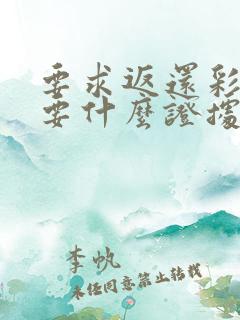 要求返還彩
要什麼證據
李帆
未任同意禁止转载